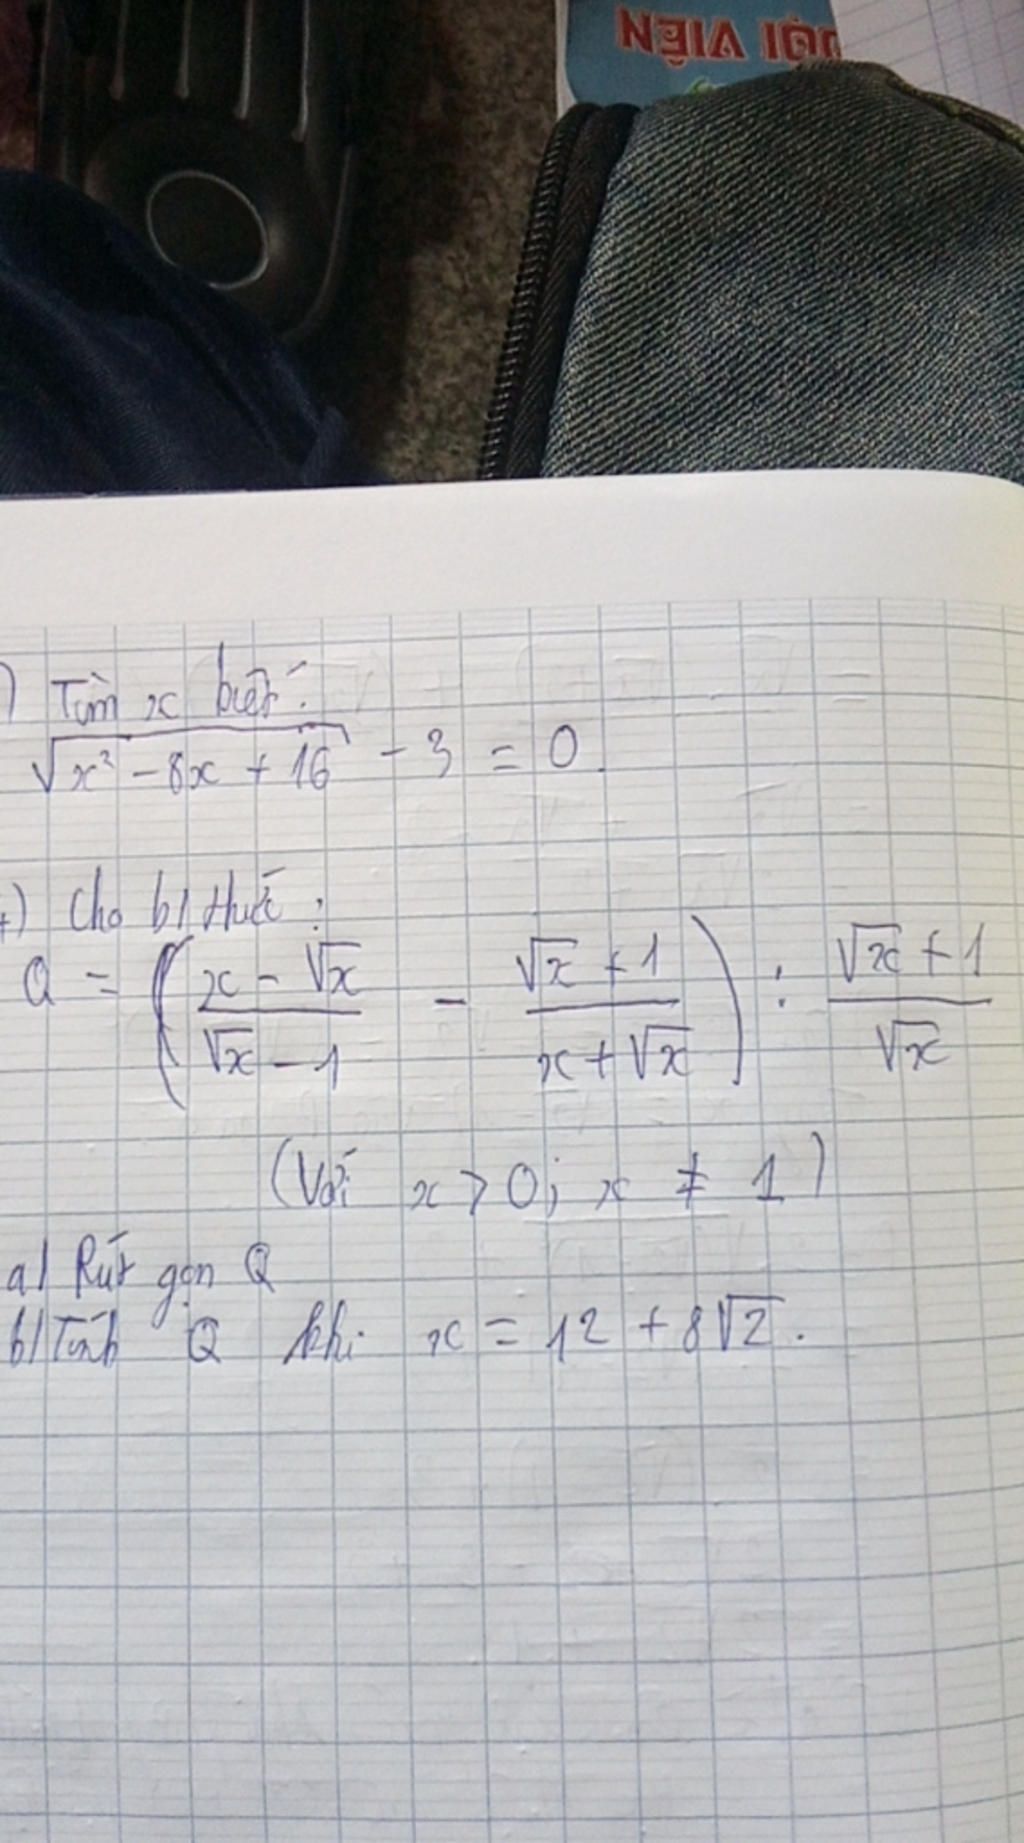 ĐỘI VIÊN
) Tìm x biết:
√(x² - 8x + 16) - 3 = 0.
4) Cho b/ thức:
Q = ((x - √x)/(√x - 1) - (√x + 1)/(x + √x)) : (√x + 1)/√x
(Với x > 0; x ≠ 1)
a/ Rút gọn Q
b/ Tính Q khi x = 12 + 8√2.